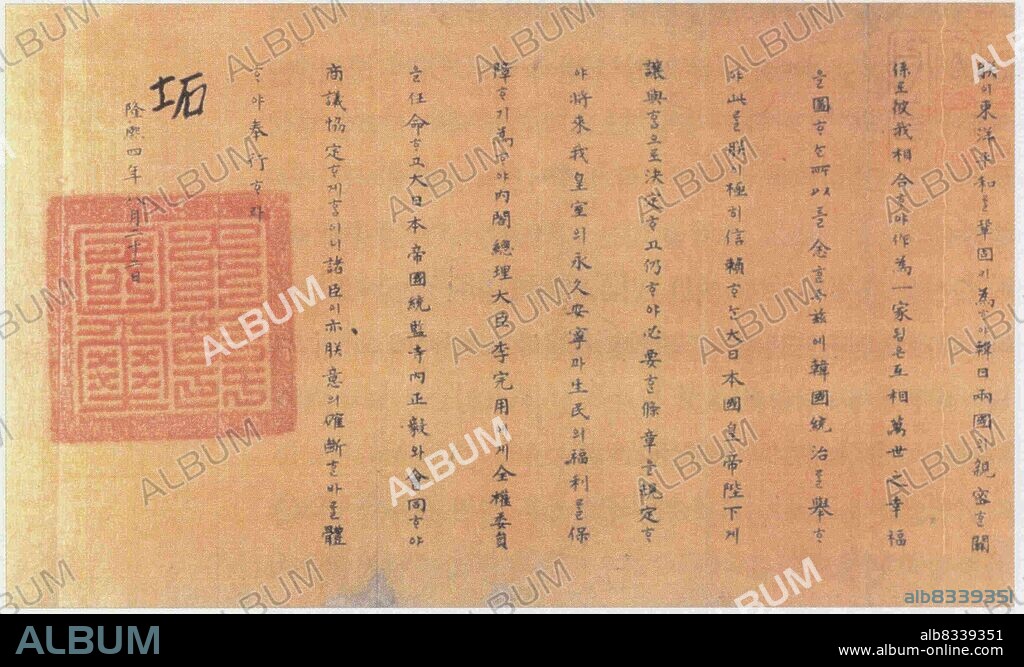 朕이東洋平和를鞏固이爲ᄒᆞ야韓日兩國의親密ᄒᆞᆫ關
係로彼我相合ᄒᆞ야作爲一家됨은互相萬世之幸福
을圖ᄒᆞᄂᆞᆫ所以를念ᄒᆞᆫ즉玆에韓國統治를擧ᄒᆞ
야此를朕이極히信賴ᄒᆞᄂᆞᆫ大日本國皇帝陛下게
讓與홈으로決定ᄒᆞ고仍ᄒᆞ야必要ᄒᆞᆫ條章을規定ᄒᆞ
야將來我皇室의永久安寧과生民의福利를保
障ᄒᆞ기爲ᄒᆞ야內閣總理大臣李完用에게全權委員
을任命ᄒᆞ고大日本帝國統監寺內正毅와會同ᄒᆞ야
商議協定ᄒᆞ게홈이니諸臣이亦朕意의確斷ᄒᆞᆫ바를體
ᄒᆞ야奉行ᄒᆞ라
坧
隆熙四年八月二十二日
ALBUM
alb8339351
ALBUM
alb8339351
www.album-online.com